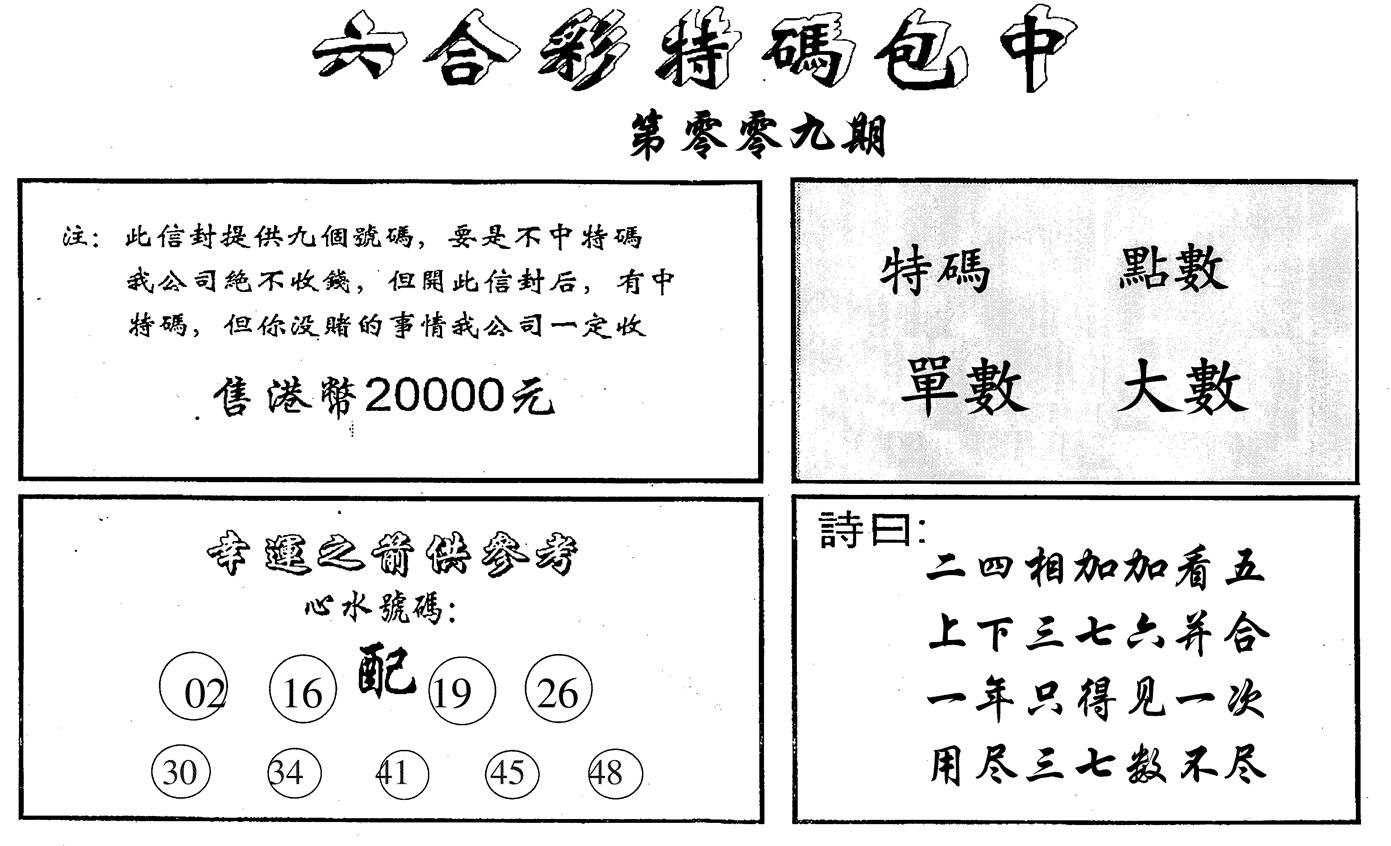 六合彩特碼包中
第零零九期
注：此信封提供九個號碼，要是不中特碼
我公司絕不收錢，但開此信封后，有中
特碼，但你没賭的事情我公司一定收
售港幣20000元
特碼 點數
單數 大數
幸運之箭供參考
心水號碼：
02 16 配 19 26
30 34 41 45 48
詩曰：
二四相加加看五
上下三七六并合
一年只得见一次
用尽三七数不尽